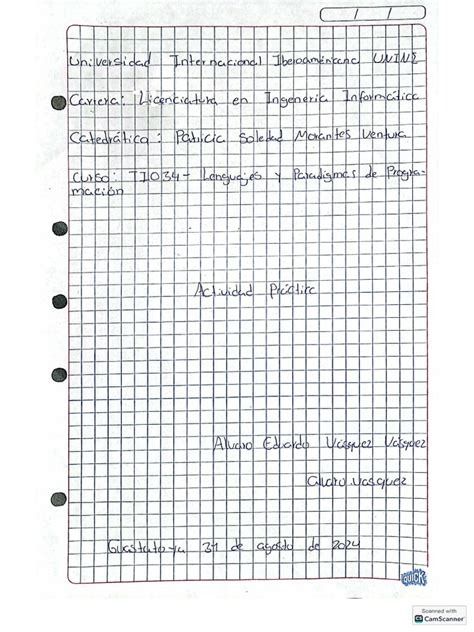 / /
Universidad Internacional Iberoaméricana UNINI
Carrera: Licenciatura en Ingeneria Informática
Catedrática: Patricia Soledad Morantes Ventura
Curso: II034- Lenguajes y Paradigmas de Progra-
mación
Actividad Práctica
Alvaro Eduardo Vásquez Vásquez
alvaro.vasquez
Guastatoya 31 de agosto de 2024
QUICK
Scanned with
CS CamScanner